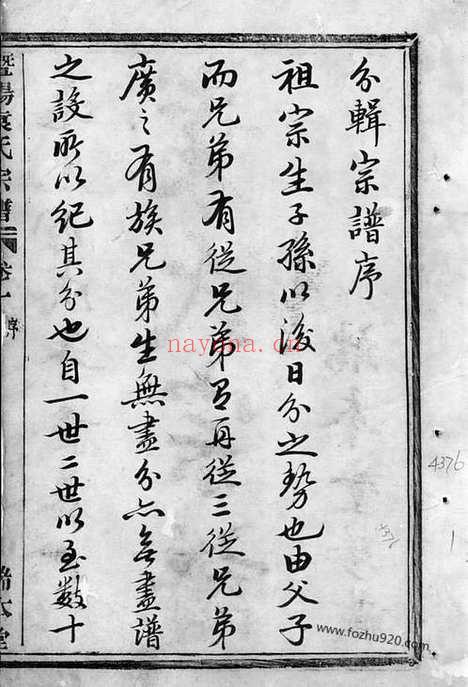 分輯宗譜序
祖宗生子孫以後日分之勢也由父子
而兄弟有從兄弟有再從三從兄弟
廣之有族兄弟生無盡分亦無盡譜
之設所以紀其分也自一世二世以至數十
暨陽袁氏宗譜
卷一
序
nayona.cn
4376
1
www.fozhu920.com